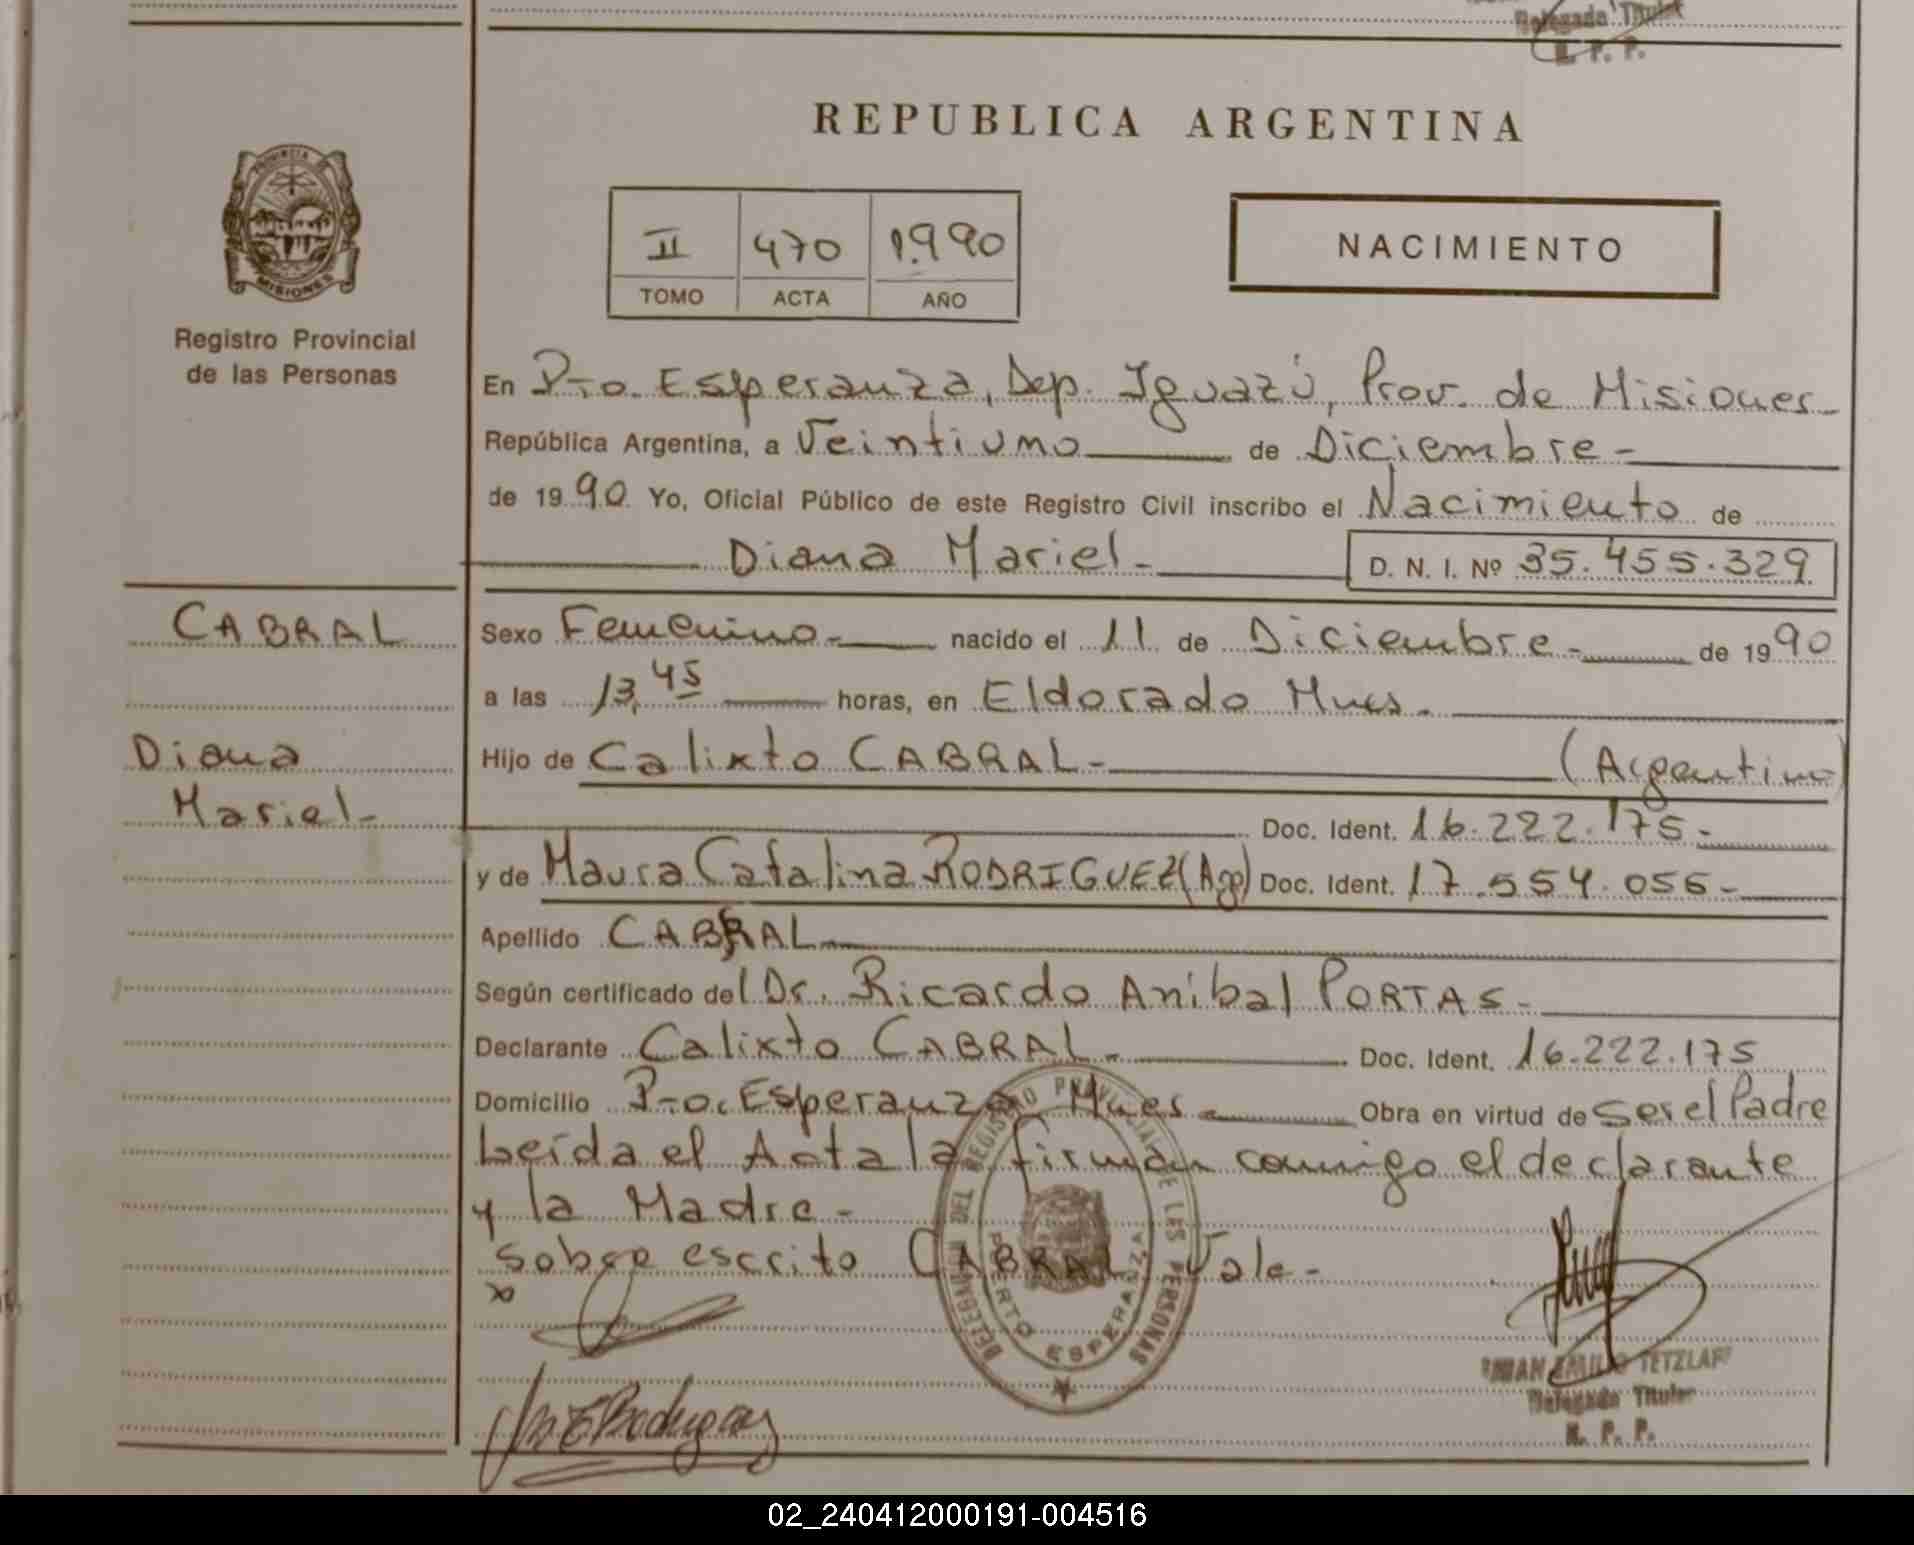 Delegado Titular
R. P. P.
REPUBLICA ARGENTINA
PROVINCIA DE
MISIONES
Registro Provincial
de las Personas
II 470 1.990
TOMO ACTA AÑO
NACIMIENTO
En Pto. Esperanza, Dep. Iguazú, Prov. de Misiones-
República Argentina, a Veintiuno de Diciembre-
de 1990 Yo, Oficial Público de este Registro Civil inscribo el Nacimiento de
Diana Mariel- D. N. I. Nº 35.455.329
CABRAL
Diana
Mariel-
Sexo Femenino- nacido el 11 de Diciembre- de 1990
a las 13,45 horas, en Eldorado Mnes.
Hijo de Calixto CABRAL- (Argentino)
Doc. Ident. 16.222.175-
y de Maura Catalina RODRIGUEZ (Arg) Doc. Ident. 17.554.056-
Apellido CABRAL
Según certificado del Dr. Ricardo Anibal PORTAS-
Declarante Calixto CABRAL- Doc. Ident. 16.222.175
Domicilio Pto. Esperanza Mnes- Obra en virtud de ser el Padre
Leída el Acta la firman conmigo el declarante
y la Madre-
Sobre escrito CABRAL Vale-
DELEGACION DEL REGISTRO PROVINCIAL DE LES PERSONAS
PUERTO ESPERANZA
EMILIO TETZLAFF
Delegado Titular
R. P. P.
02_240412000191-004516